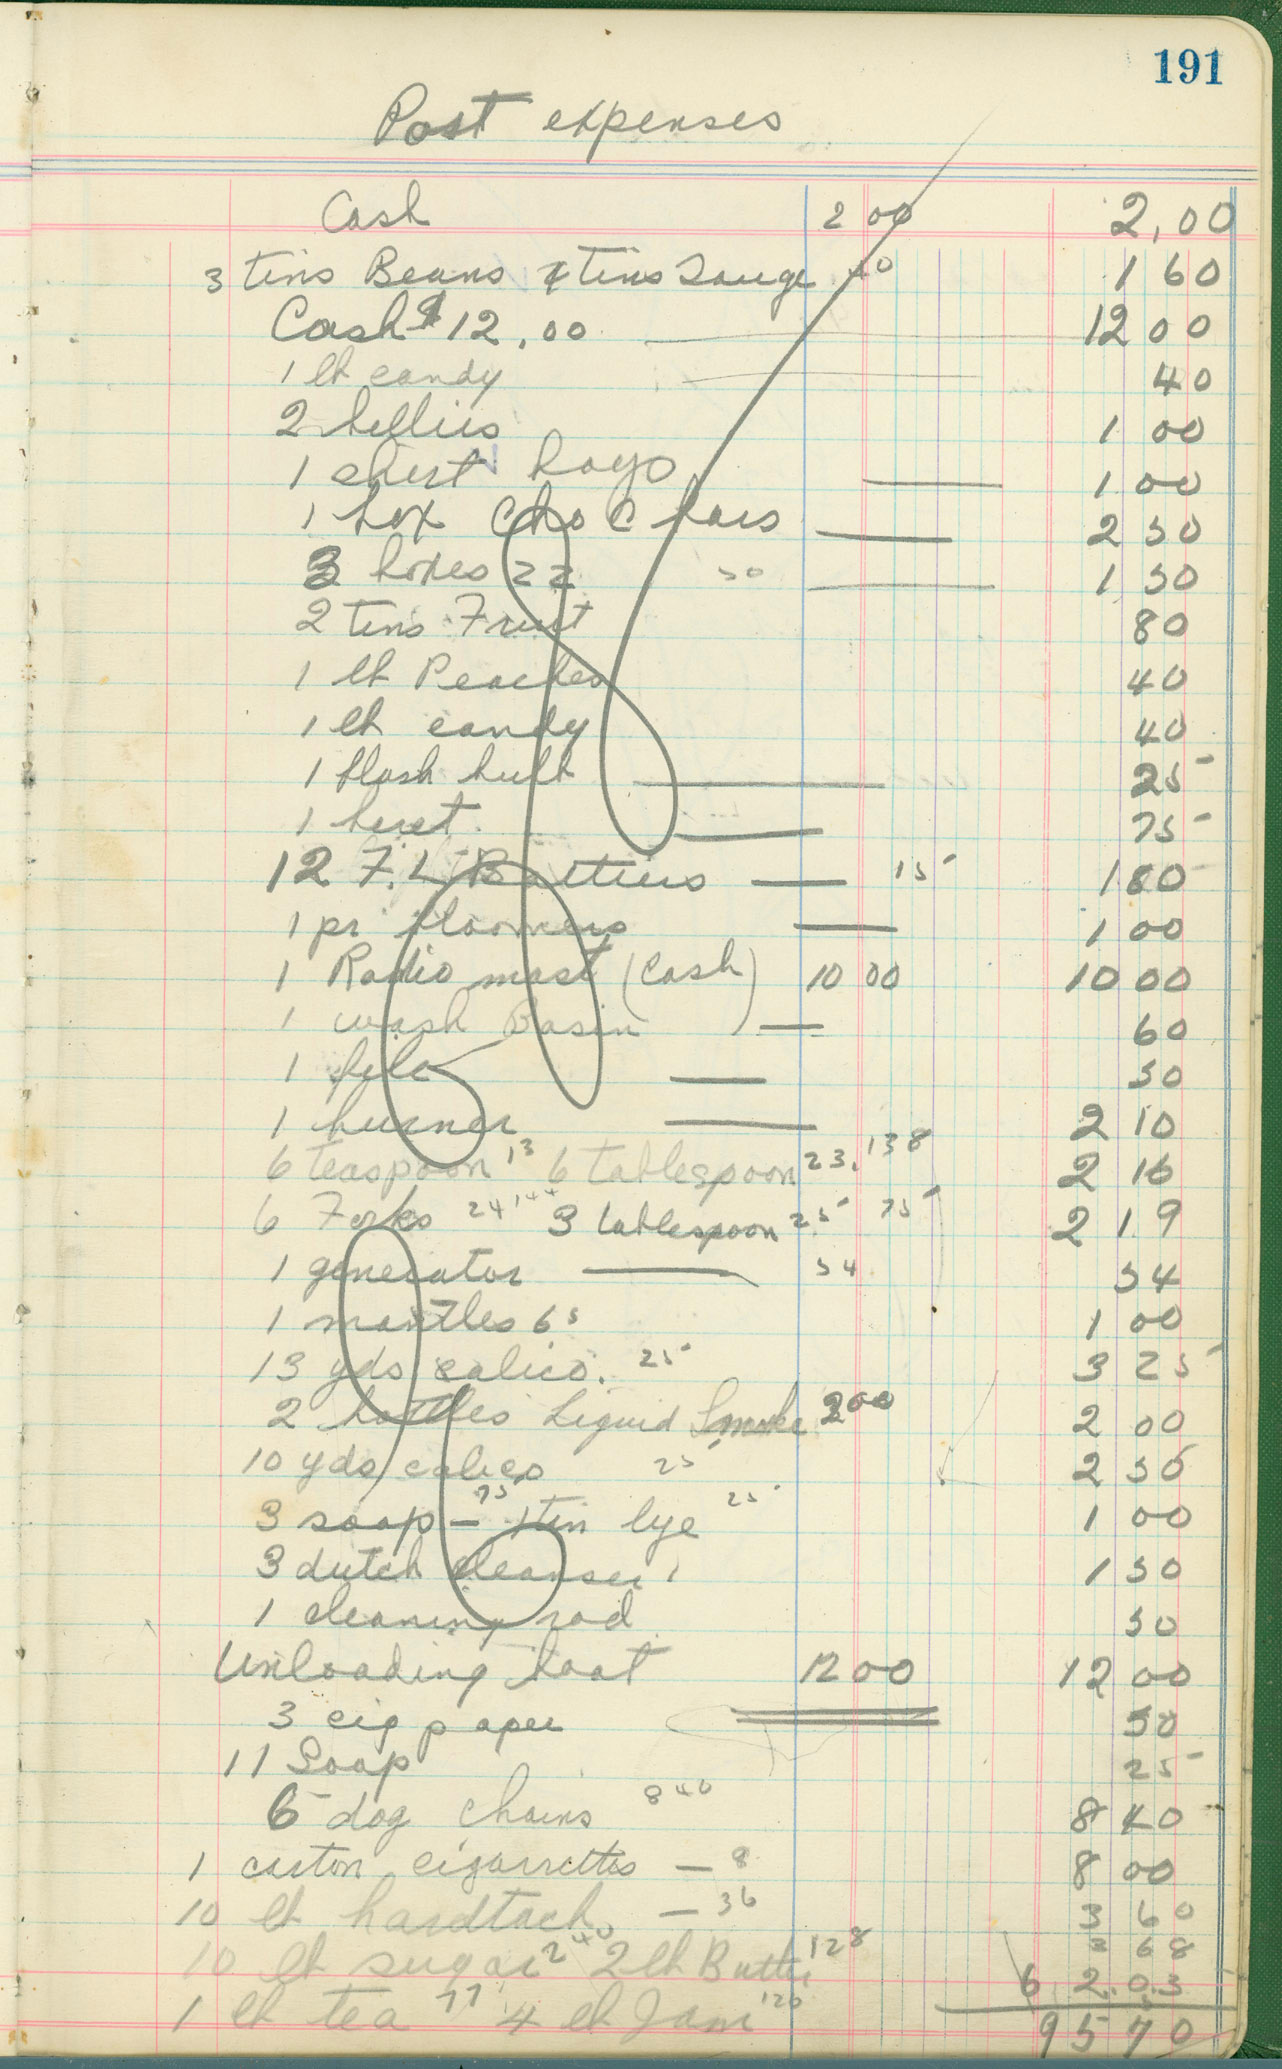 191
Post expenses
Cash 2 00 2,00
3 tins Beans 4 tins 40 1 60
Cash $12.00 12 00
1 lb candy 40
2 1 00
1 shirt boys 1 00
1 box choc bars 2 50
3 boxes 22 50 1 50
2 tins Fruit 80
1 lb Peaches 40
1 lb candy 40
1 flash bulb 25
1 beret 75
12 F.L. Batteries 15 1 80
1 pr bloomers 1 00
1 Radio mast (cash) 10 00 10 00
1 wash Basin 60
1 file 50
1 burner 2 10
6 teaspoon 13 6 tablespoon 23. 138 2 16
6 Forks 24 144 3 tablespoon 25 75 2 19
1 generator 54 54
1 mantles 1 00
13 yds calico. 25 3 25
2 bottles Liquid Smoke 200 2 00
10 yds calico 25 2 50
3 soap - 75 1 tin lye 25 1 00
3 dutch cleanser 1 50
1 cleaning rod 50
Unloading boat 12 00 12 00
3 cig paper 50
11 Soap 25
6 dog chains 840 8 40
1 carton cigarrettes - 8 8 00
10 lb hardtack - 36 3 60
10 lb sugar 240 2 lb Butter 128 3 68
6 2.03
1 lb tea 77 4 lb Jam 120
95 70